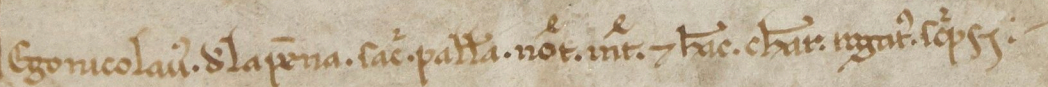 Ego nicolaus. d̄ la pēna. sac̄. pall̄a. not̄. int̄. ⁊ hāc. char̄. rogat᷒. sc̄psi.